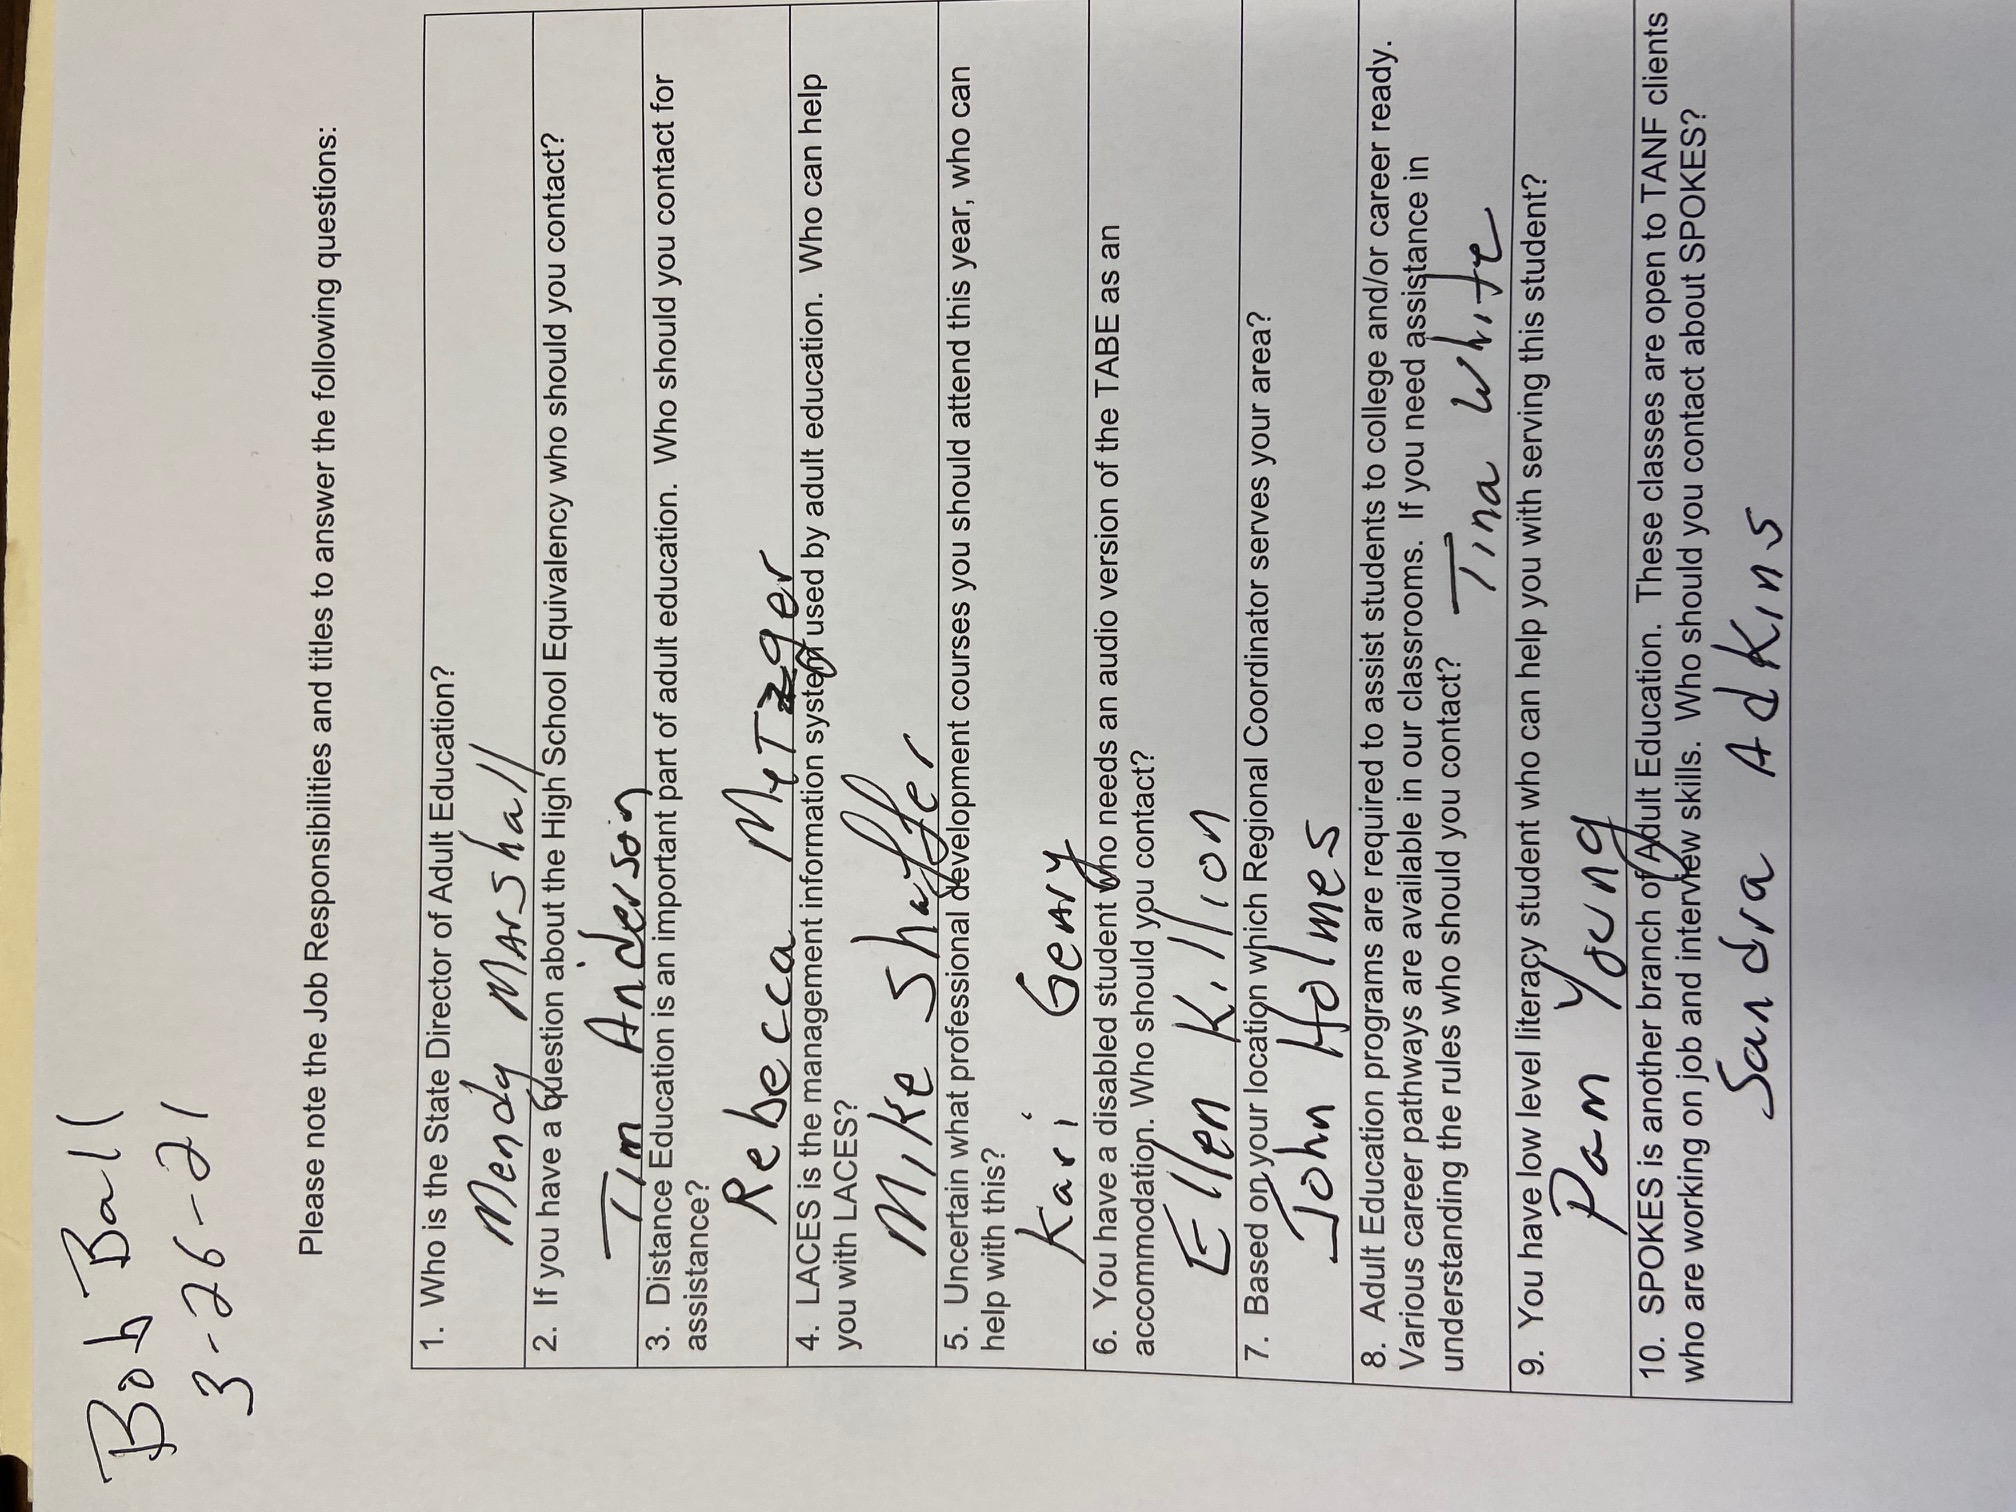 Bob Ball
3-26-21
Please note the Job Responsibilities and titles to answer the following questions:
1. Who is the State Director of Adult Education?
Mendy Marshall
2. If you have a question about the High School Equivalency who should you contact?
Tim Anderson
3. Distance Education is an important part of adult education. Who should you contact for
assistance?
Rebecca Metzger
4. LACES is the management information system used by adult education. Who can help
you with LACES?
Mike Shaffer
5. Uncertain what professional development courses you should attend this year, who can
help with this?
Kari Geary
6. You have a disabled student who needs an audio version of the TABE as an
accommodation. Who should you contact?
Ellen Killion
7. Based on your location which Regional Coordinator serves your area?
John Holmes
8. Adult Education programs are required to assist students to college and/or career ready.
Various career pathways are available in our classrooms. If you need assistance in
understanding the rules who should you contact? Tina White
9. You have low level literacy student who can help you with serving this student?
Pam Young
10. SPOKES is another branch of Adult Education. These classes are open to TANF clients
who are working on job and interview skills. Who should you contact about SPOKES?
Sandra Adkins